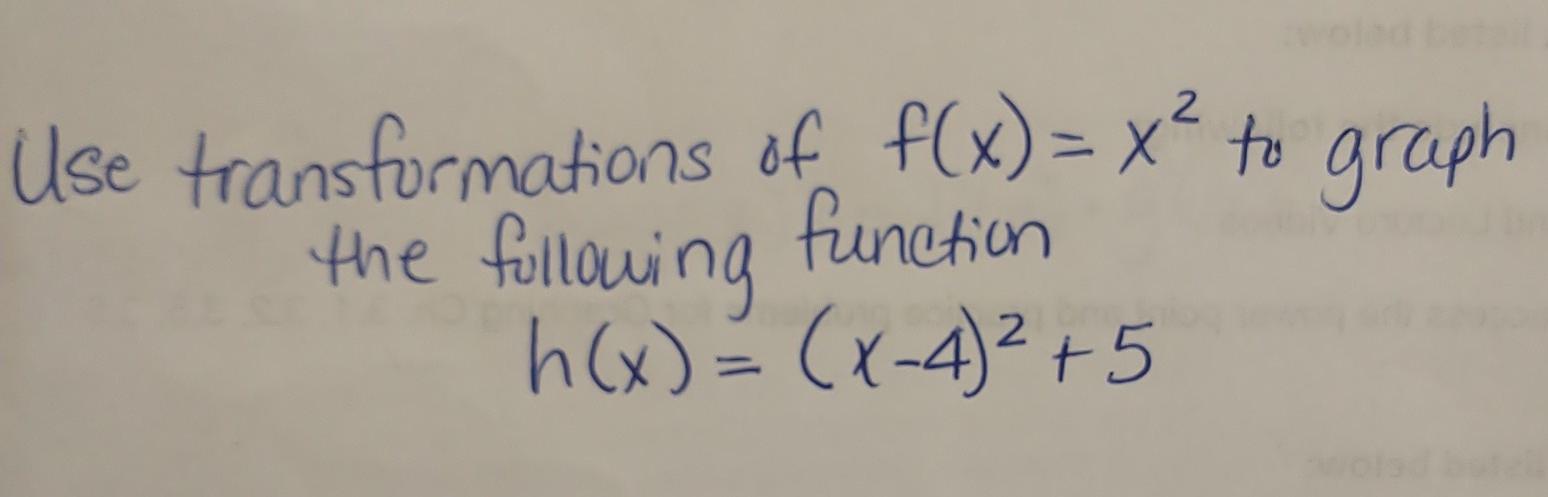 Use transformations of f(x) = x² to graph
the following function
h(x) = (x-4)² + 5